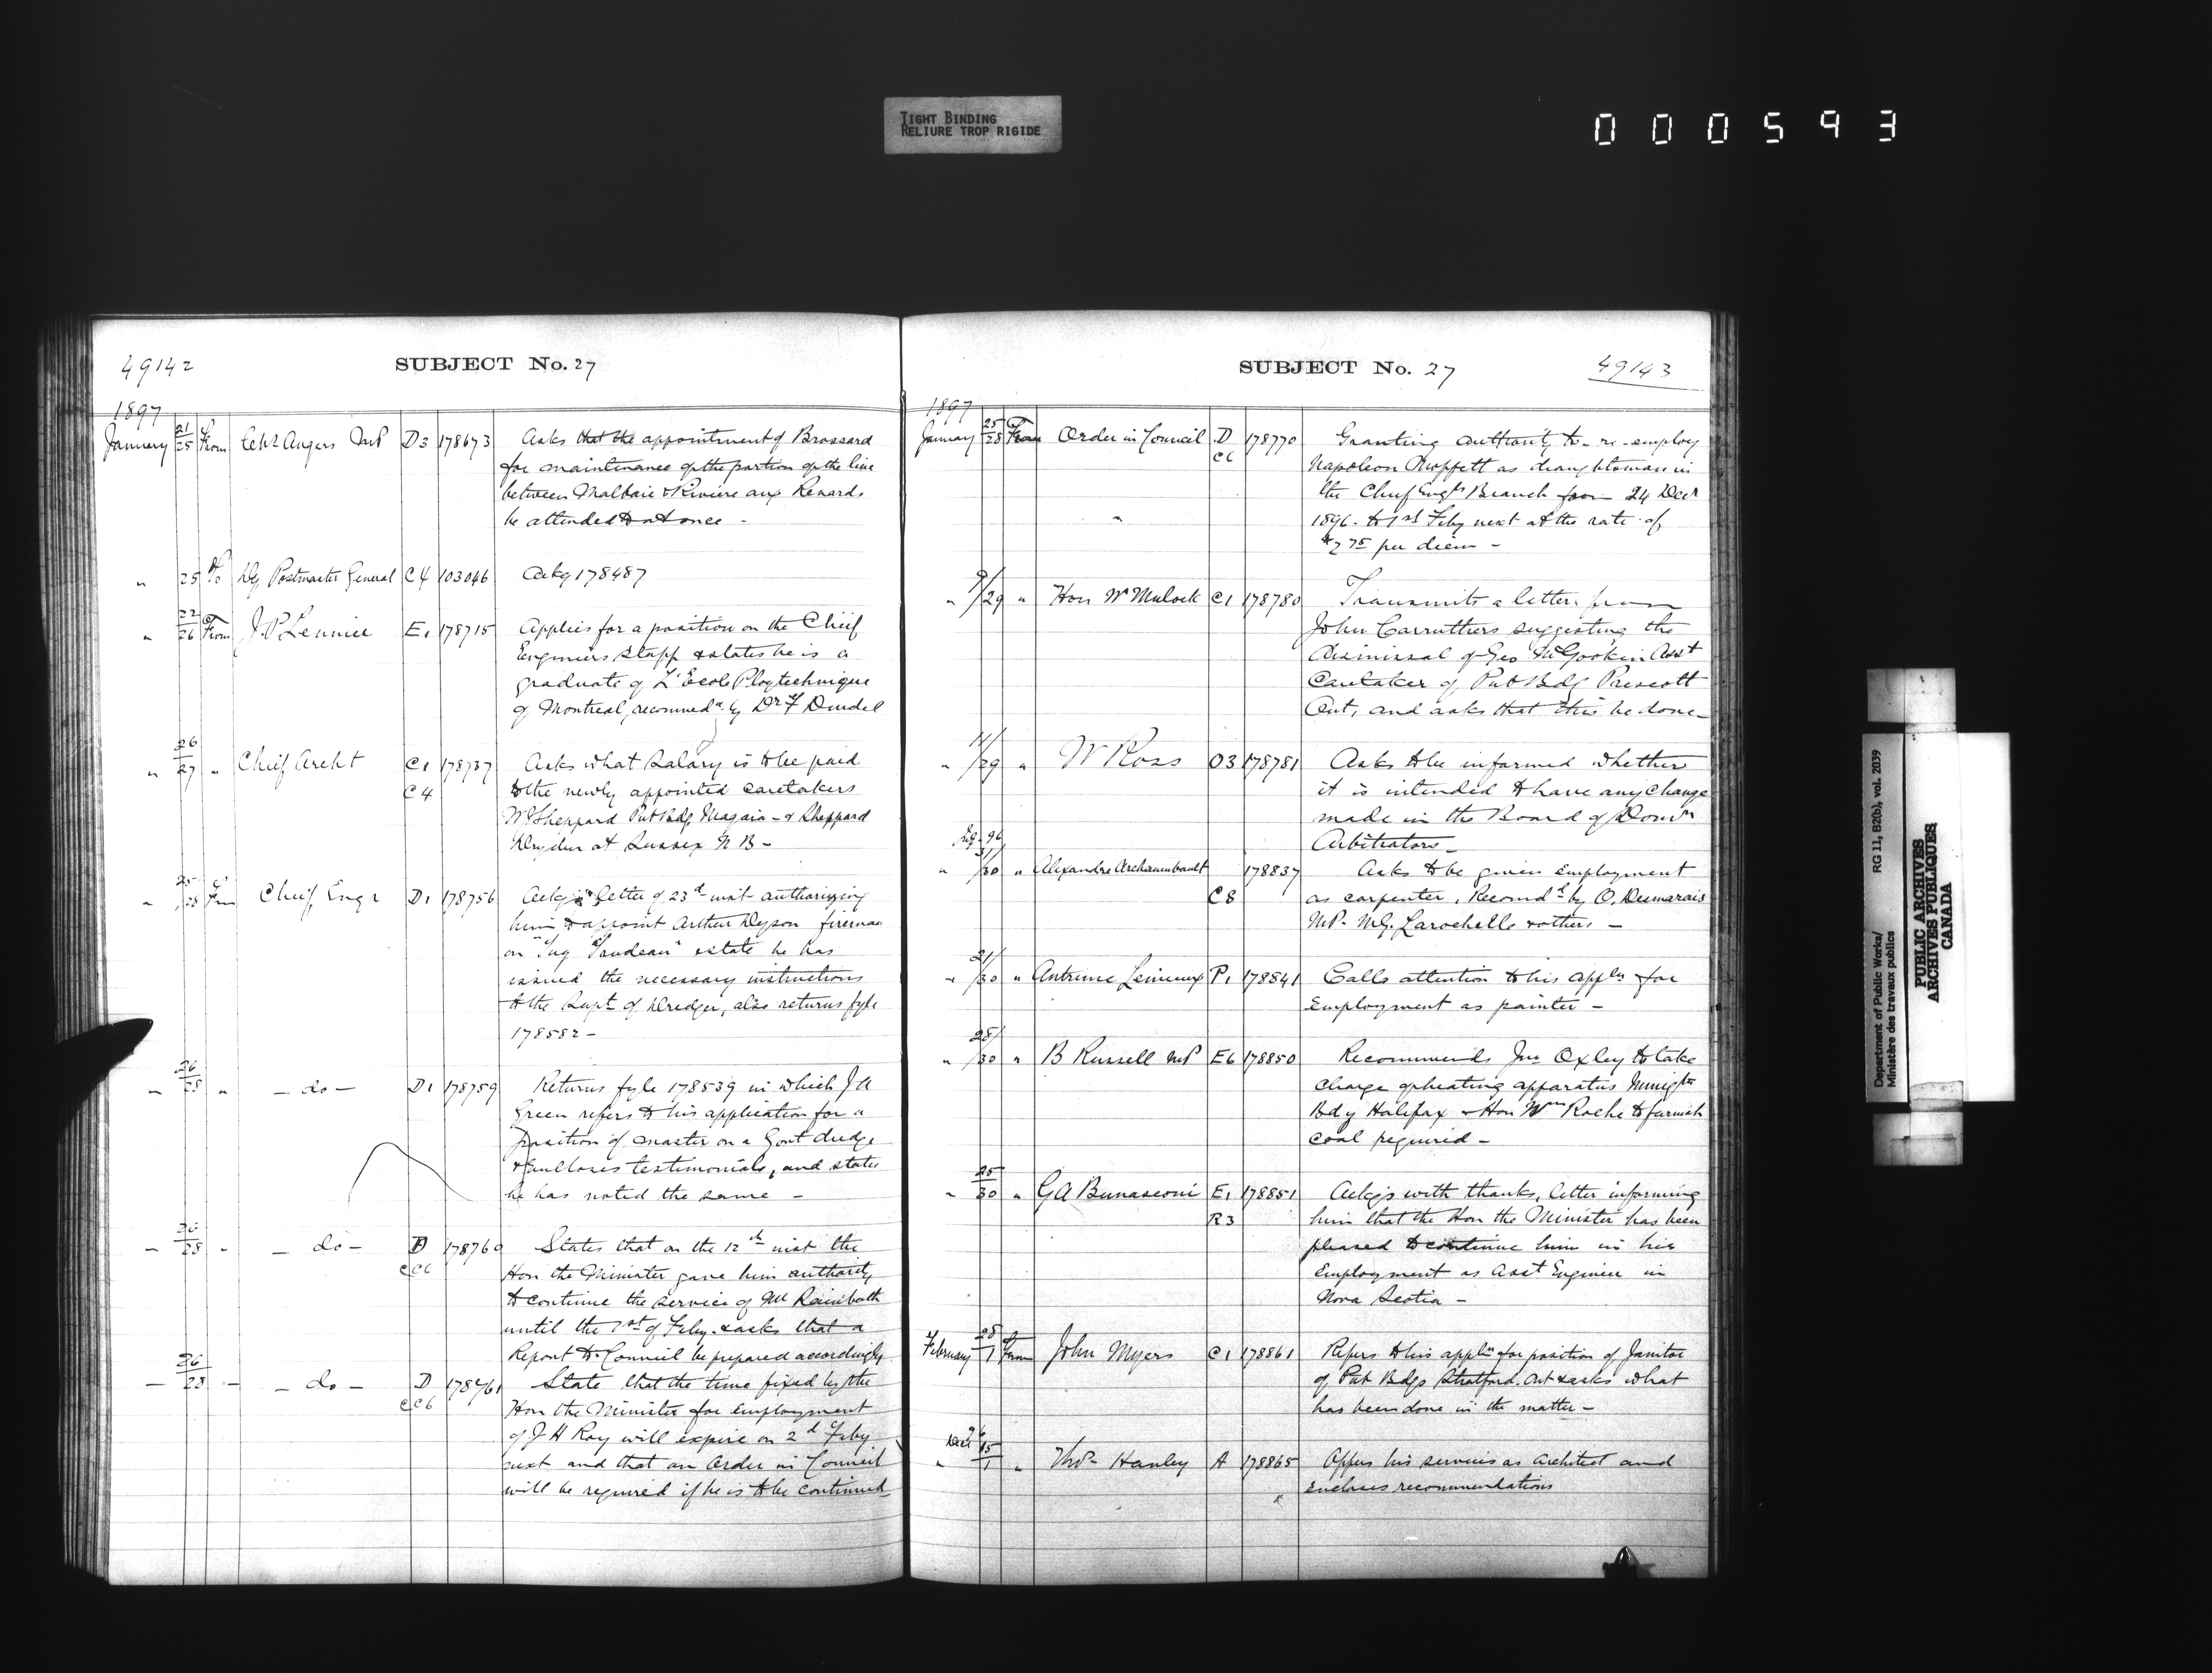 TIGHT BINDING
RELIURE TROP RIGIDE
000593
49142
SUBJECT No. 27
1897
January 21/25 From Chs Angers MP D3 178673 Asks that the appointment of Brossard
for maintenance of the portion of the line
between Malbaie & Riviere aux Renards
be attended to at once -
" 25 To Dy Postmaster General C4 103046 Ackg 178487
" 22/26 From J.P. E1 178715 Applies for a position on the Chief
Engineers Staff & states he is a
graduate of L'Ecole Ploytechnique
of Montreal, recommed by Dr F
" 26/27 " Chief Archt C1 178737 Asks what Salary is to be paid
C4 to the newly appointed caretakers
Sheppard Pub Bdg & Sheppard
Dryden at Sussex N B -
" 25/28 From Chief Engr D1 178756 Ackgs letter of 23d inst authorizing
him to appoint Arthur Dyson fireman
on "Tug Trudeau" & state he has
issued the necessary instructions
to the Supt of Dredges, also returns fyle
178582 -
" 26/28 " - do - D1 178759 Returns fyle 178539 in which J A
Green refers to his application for a
position of master on a Govt dredge
& Encloses testimonials, and states
he has noted the same -
" 26/28 " - do - D 178760 States that on the 12th inst the
CC6 Hon the Minister gave him authority
to continue the service of Mr Rainboth
until the 1st of Feby. & asks that a
Report to Council be prepared accordingly
" 26/28 - - do - D 178761 State that the time fixed by the
CC6 Hon the Minister for Employment
of J H Ray will expire on 2d Feby
next and that an Order in Council
will be required if he is to be continued
SUBJECT No. 27
49143
1897
January 25/28 From Order in Council D 178770 Granting authority to re-employ
C6 Napoleon as draughtsman in
the Chief Engrs Branch from 24 Decr
" 1896. to 1st Feby next at the rate of
$2 75 per diem -
" 9/29 " Hon Wm Mulock C1 178780 Transmits a letter from
John Carruthers suggesting the
dismissal of Geo McGookin Asst
Caretaker of Pub Bdg Prescott
Ont, and asks that this be done -
" 11/29 " W Ross O3 178781 Asks to be informed whether
it is intended to have any Change
made in the Board of Domn
Arbitrators -
96
" 31/30 " Alexandre Archambault 178837 Asks to be given employment
C8 as carpenter. Recomd by O. Desmarais
MP - M.G. Larochelle & others -
" 21/30 " Antoine Lemieux P1 178841 Calls attention to his appln for
Employment as painter -
" 28/30 " B Russell MP E6 178850 Recommends Jno Oxley to take
charge of heating apparatus Immigtn
Bdg Halifax & Hon Wm Roche to furnish
coal required -
" 25/30 " G A Bernasconi E1 178851 Ackgs with thanks, letter informing
R3 him that the Hon the Minister has been
pleased to continue him in his
Employment as Asst Engineer in
Nova Scotia -
February 28/1 From John Myers C1 178861 Refers to his appln for position of Janitor
of Pub Bdgs Stratford. Ont & asks what
has been done in the matter -
Decr 96
" 15/1 " Thos Hanley A 178865 Offers his services as Architect and
Encloses recommendations
Department of Public Works/
Ministère des travaux publics
RG 11, B2(b), vol. 2039
PUBLIC ARCHIVES
ARCHIVES PUBLIQUES
CANADA